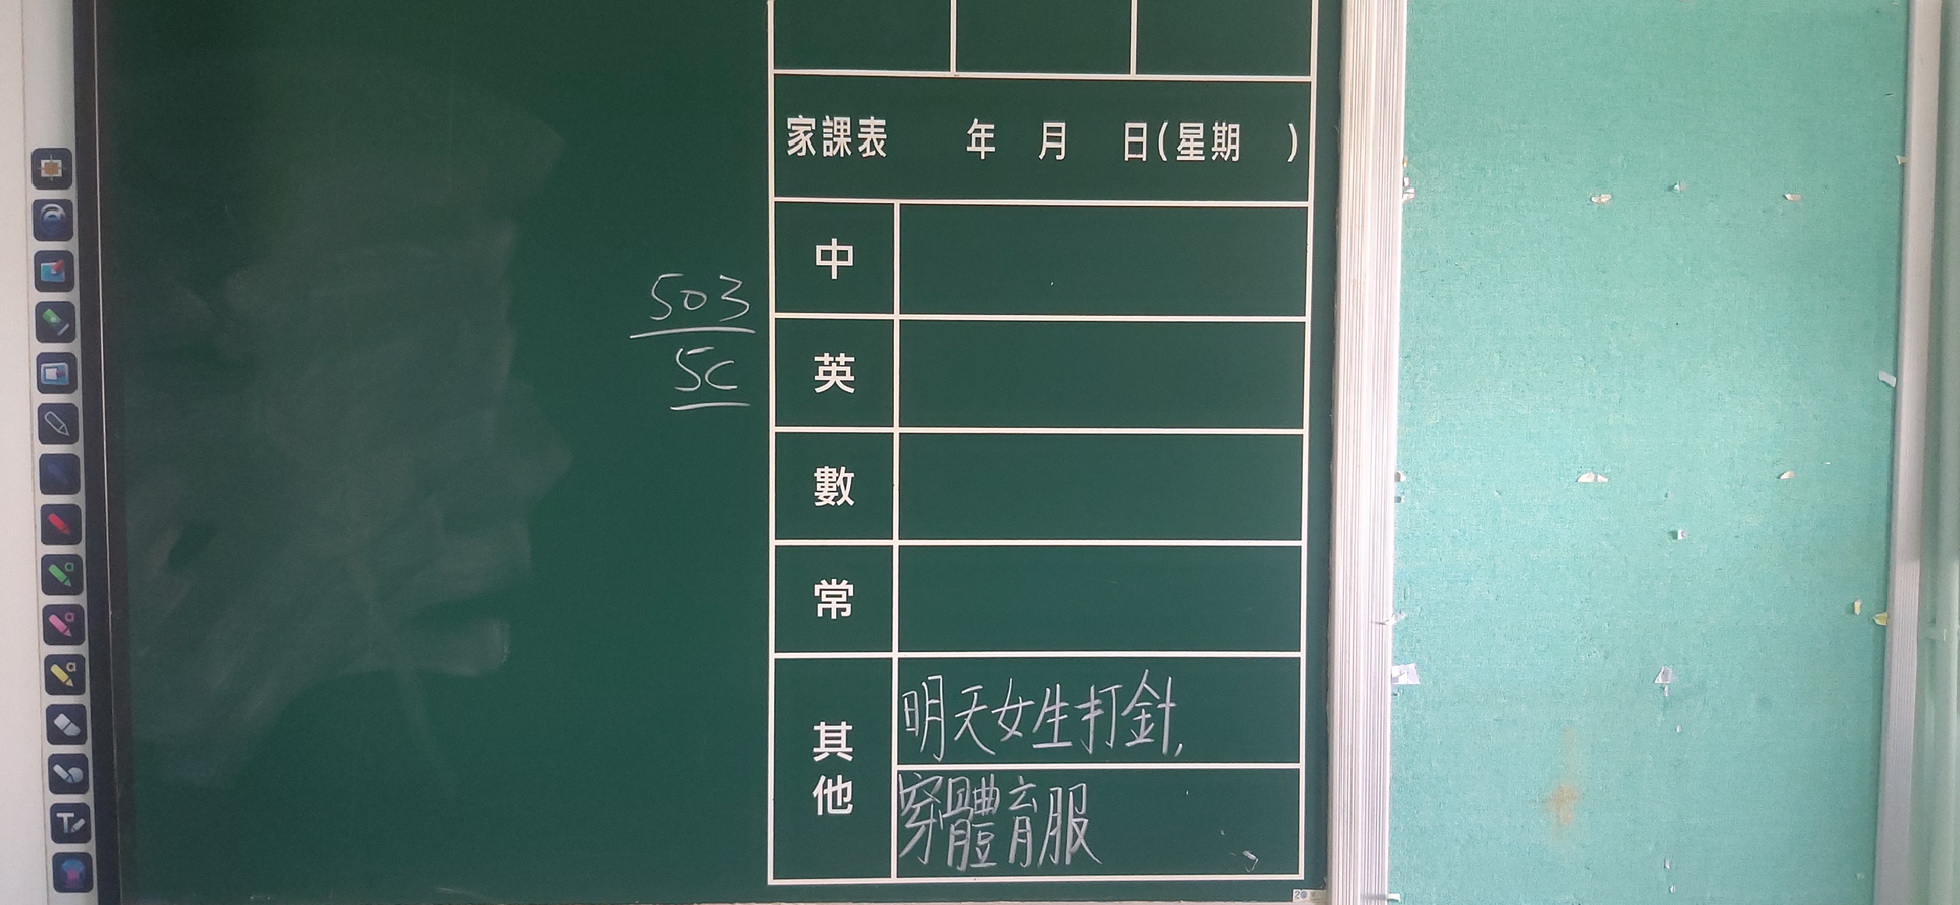 家課表 年 月 日(星期 )
中
503
5C
英
數
常
其他
明天女生打針,
穿體育服